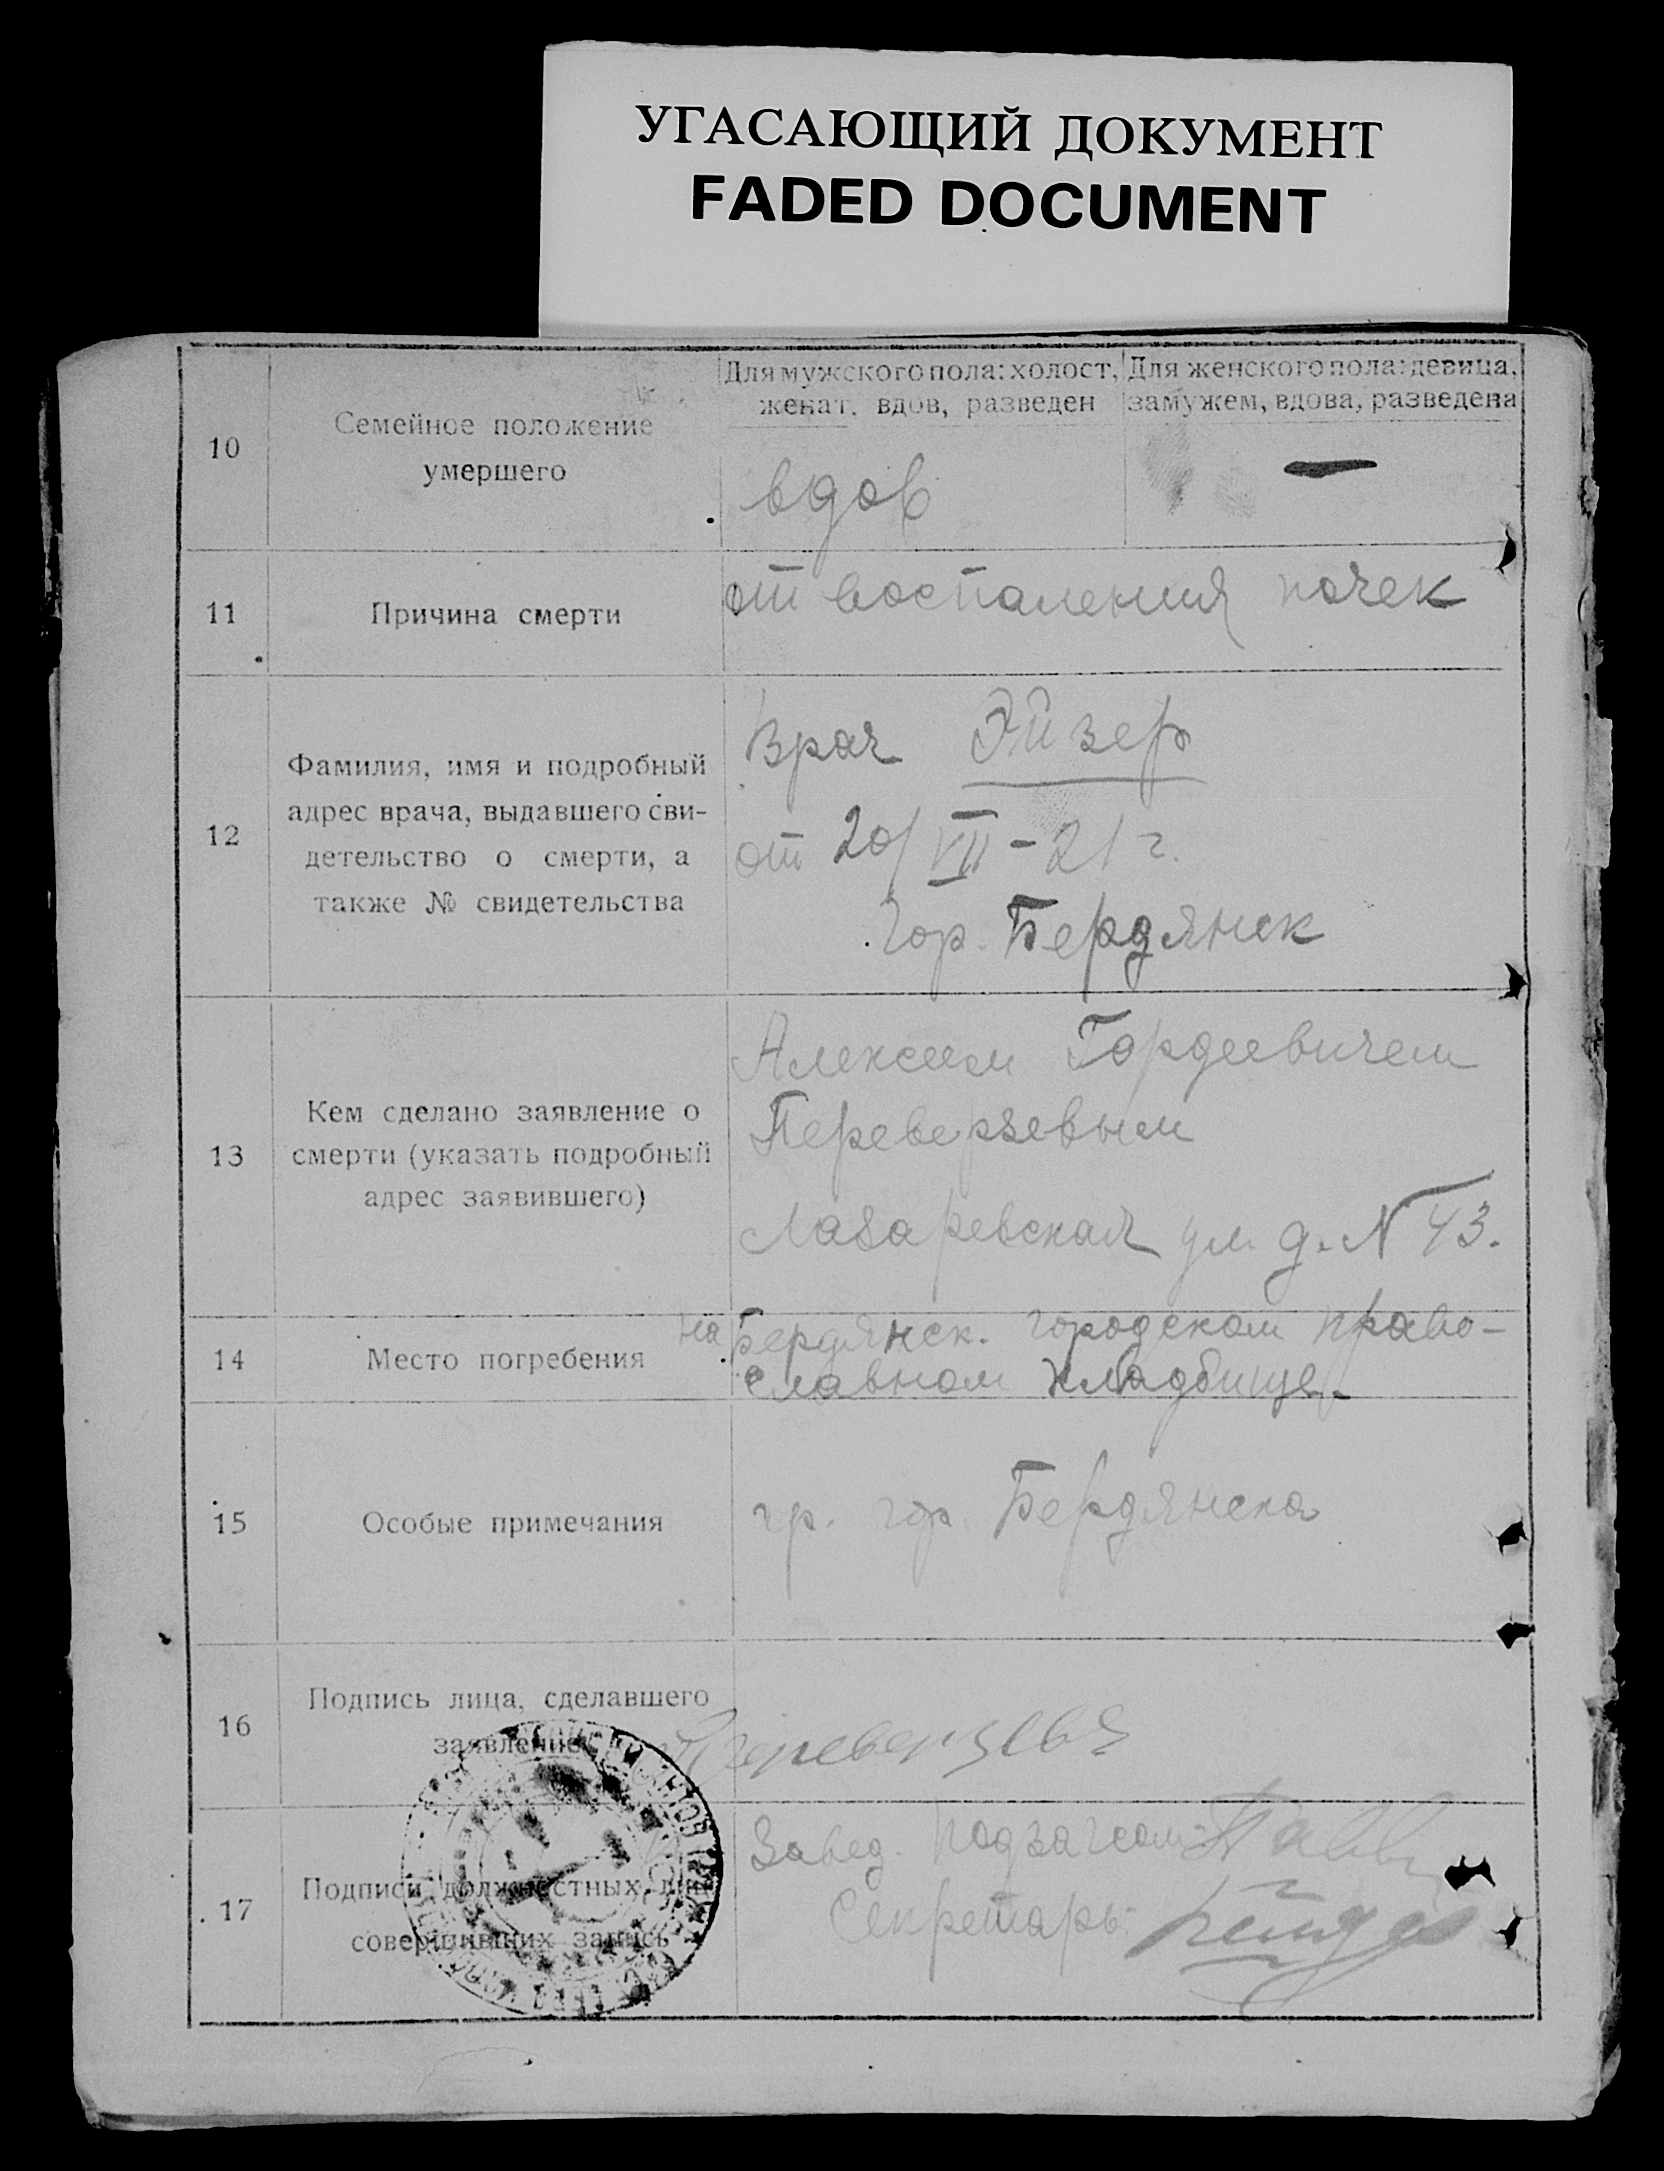 УГАСАЮЩИЙ ДОКУМЕНТ
FADED DOCUMENT
10
Семейное положение
умершего
Для мужского пола: холост,
женат, вдов, разведен
Для женского пола: девица,
замужем, вдова, разведена
вдов
—
11
Причина смерти
от воспаления почек
12
Фамилия, имя и подробный
адрес врача, выдавшего сви-
детельство о смерти, а
также № свидетельства
Врач Эйзер
от 20/VII-21 г.
гор. Бердянск
13
Кем сделано заявление о
смерти (указать подробный
адрес заявившего)
Алексеем Гордеевичем
Переверзевым
Лазаревская ул. д. N 43.
14
Место погребения
на Бердянск. городском право-
славном кладбище.
15
Особые примечания
гр. гор. Бердянска
16
Подпись лица, сделавшего
заявление
17
Подписи должностных лиц
совершивших запись
Завед. подзагсом
Секретарь